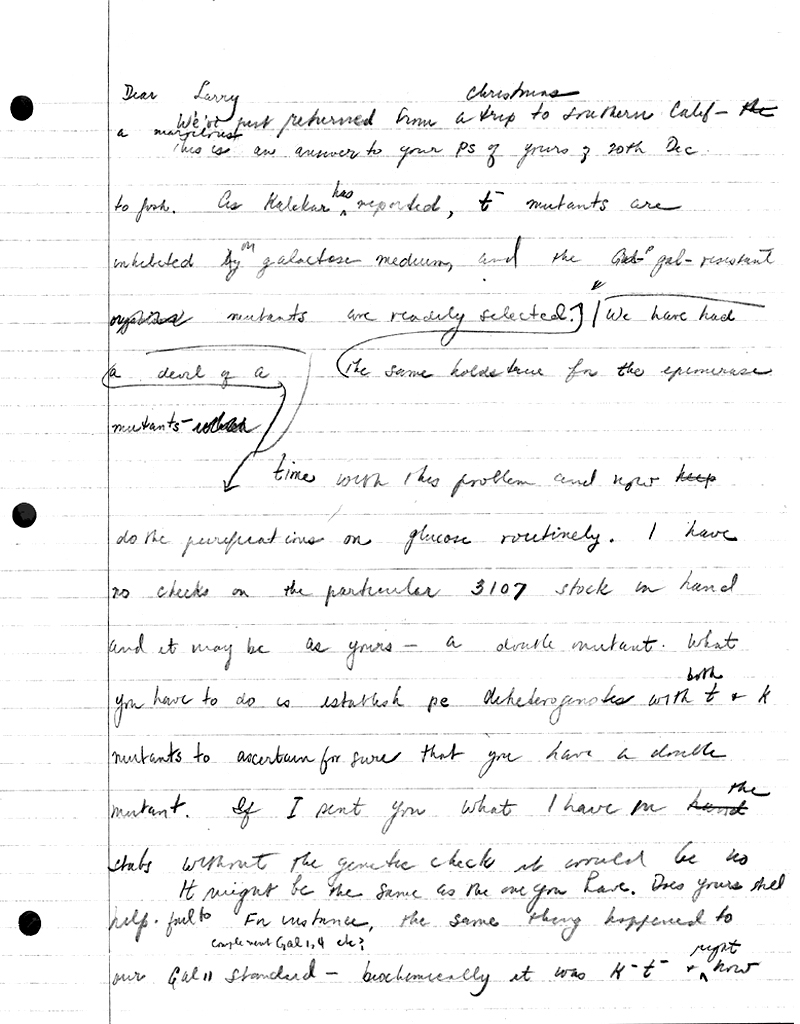 Dear Larry
Christmas
We've just returned from a trip to Southern Calif - the
a marvelous
This is an answer to your PS of yours of 20th Dec.
to Josh. As Kalckar has reported, t⁻ mutants are
inhibited by on galactose medium, and the gal-resistant
mutants are readily selected.] / We have had
a devil of a (The same holds true for the epimerase
mutants-
time with this problem and now keep
do the purifications on glucose routinely. I have
no checks on the particular 3107 stock in hand
and it may be as yours - a double mutant. What
you have to do is establish pe deheterogenotes with both t⁻ & k
mutants to ascertain for sure that you have a double
mutant. If I sent you what I have in hand the
stabs without the genetic check it would be no
It might be the same as the one you have. Does yours still
help. fail to For instance, the same thing happened to
complement Gal 1, 4 etc?
our Gal 11 standard - biochemically it was K⁻t⁻ & right now